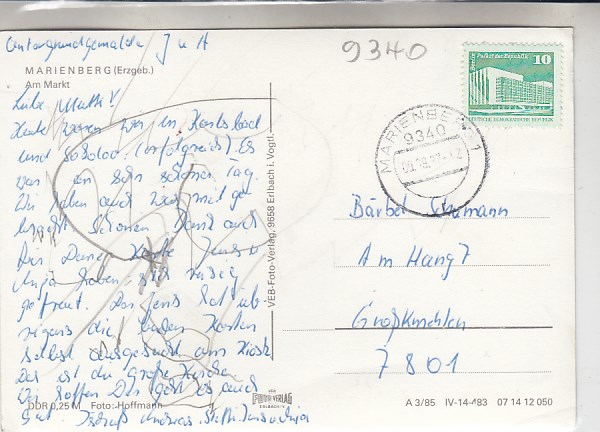 Untergrundgemalde J u A
9340
MARIENBERG (Erzgeb.)
Am Markt
Liebe Mutti!
Heute waren wir in Karlsbad
und (erfolgreich) Es
war ein sehr schöner Tag.
Wir haben auch was mit ge
bracht. Schönen Dank auch
für Deine Karte Jens u.
Anja haben sich riesig
gefreut. Der Jens hat üb-
rigens die beiden Karten
selbst ausgesucht am Kiosk
Das ist die große Kirche
Wir hoffen Dir geht es auch
gut. Andreas, Steffi, Jens u. Anja
DDR 0,25 M Foto: Hoffmann
VEB-Foto-Verlag, 9658 Erlbach i. Vogtl.
FOTO VERLAG
ERLBACH
Berlin, Palast der Republik
10
DEUTSCHE DEMOKRATISCHE REPUBLIK
MARIENBERG 1
9340
Bärbel
Am Hang 7
Großkmehlen
7801
A 3/85 IV-14-483 07 14 12 050